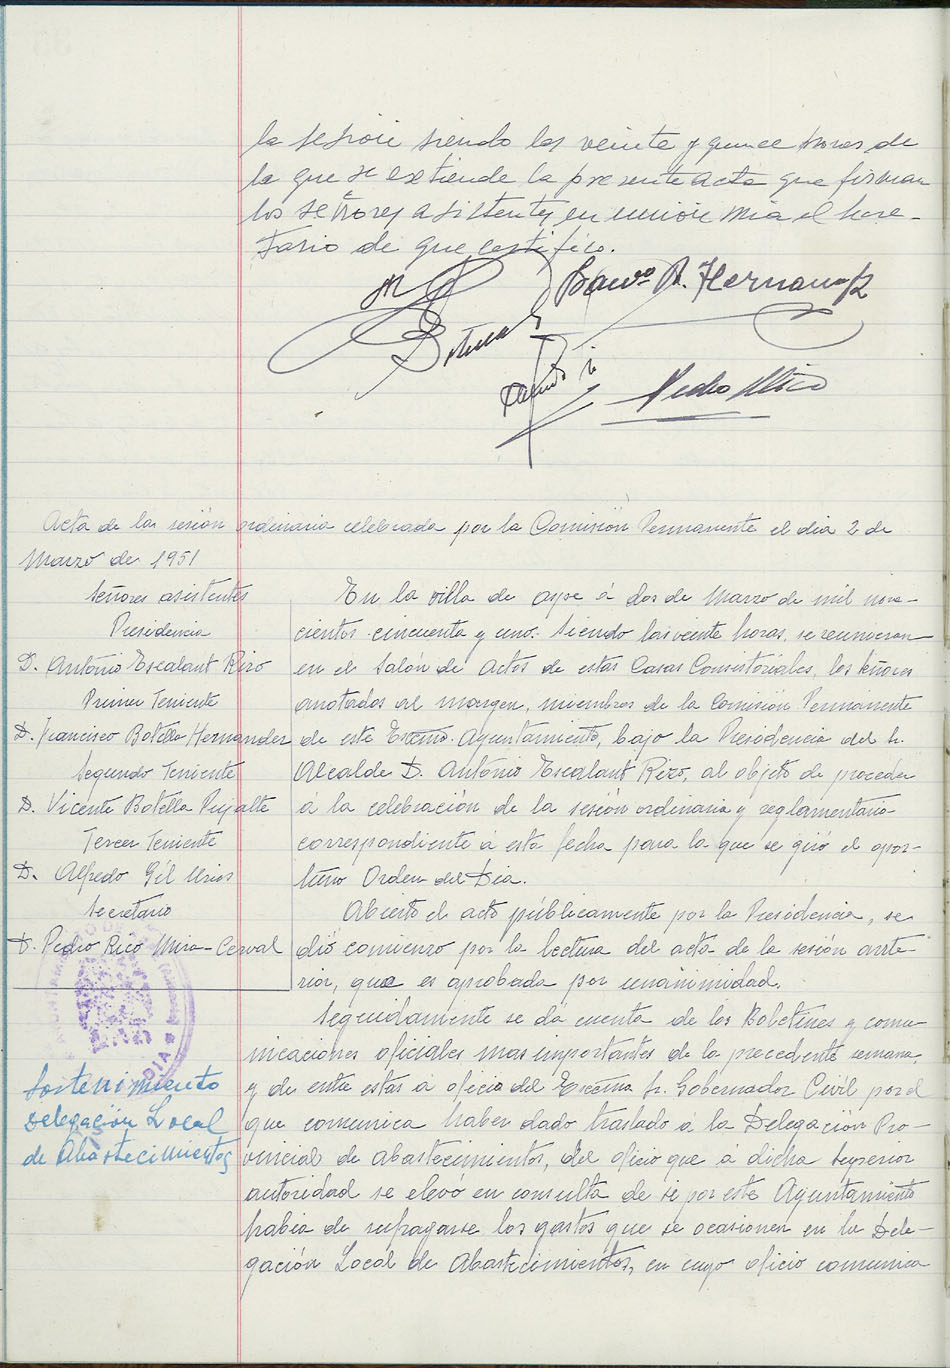 la sesión siendo las veinte y quince horas de
la que se extiende la presente acta que firman
los señores asistentes en unión mia el Secre-
tario de que certifico.
Franco B. Hernandez
Botella
Alfredo
Pedro Rico
Acta de la sesión ordinaria celebrada por la Comisión Permanente el dia 2 de
Marzo de 1951
Señores asistentes
Presidencia
D. Antonio Escalant Rizo
Primer Teniente
D. Francisco Botella Hernandez
Segundo Teniente
D. Vicente Botella Pujalte
Tercer Teniente
D. Alfredo Gil Urios
Secretario
D. Pedro Rico Mira-Cerval
En la villa de Aspe á dos de Marzo de mil nove-
cientos cincuenta y uno. Siendo las veinte horas, se reunieron
en el Salón de Actos de estas Casas Consistoriales, los Señores
anotados al margen, miembros de la Comisión Permanente
de este Excmo. Ayuntamiento, bajo la Presidencia del Sr.
Alcalde D. Antonio Escalant Rizo, al objeto de proceder
á la celebración de la sesión ordinaria y reglamentaria
correspondiente á esta fecha para la que se giró el opor-
tuno Orden del Dia.
Abierto el acto públicamente por la Presidencia, se
dió comienzo por la lectura del acta de la sesión ante-
rior, que es aprobada por unanimidad.
Seguidamente se da cuenta de los Boletines y comu-
nicaciones oficiales mas importantes de la precedente semana
y de entre estas á oficio del Excmo Sr. Gobernador Civil por el
que comunica haber dado traslado á la Delegación Pro-
vincial de abastecimientos, del oficio que á dicha Superior
autoridad se elevó en consulta de si por este Ayuntamiento
habia de sufragarse los gastos que se ocasionen en la Dele-
gación Local de Abastecimientos, en cuyo oficio comunica
Sostenimiento
Delegación Local
de Abastecimientos